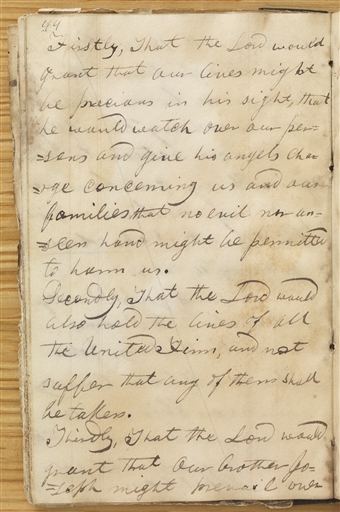 44
Firstly, That the Lord would
grant that our lives might
be precious in his sight, that
he would watch over our per-
=sons and give his angels cha-
=rge concerning us and our
families that no evil nor un-
=seen hand might be permitted
to harm us.
Secondly, That the Lord would
also hold the lives of all
the United Firm, and not
suffer that any of them shall
be taken.
Thirdly, That the Lord would
grant that our brother Jo-
=seph might prevail over